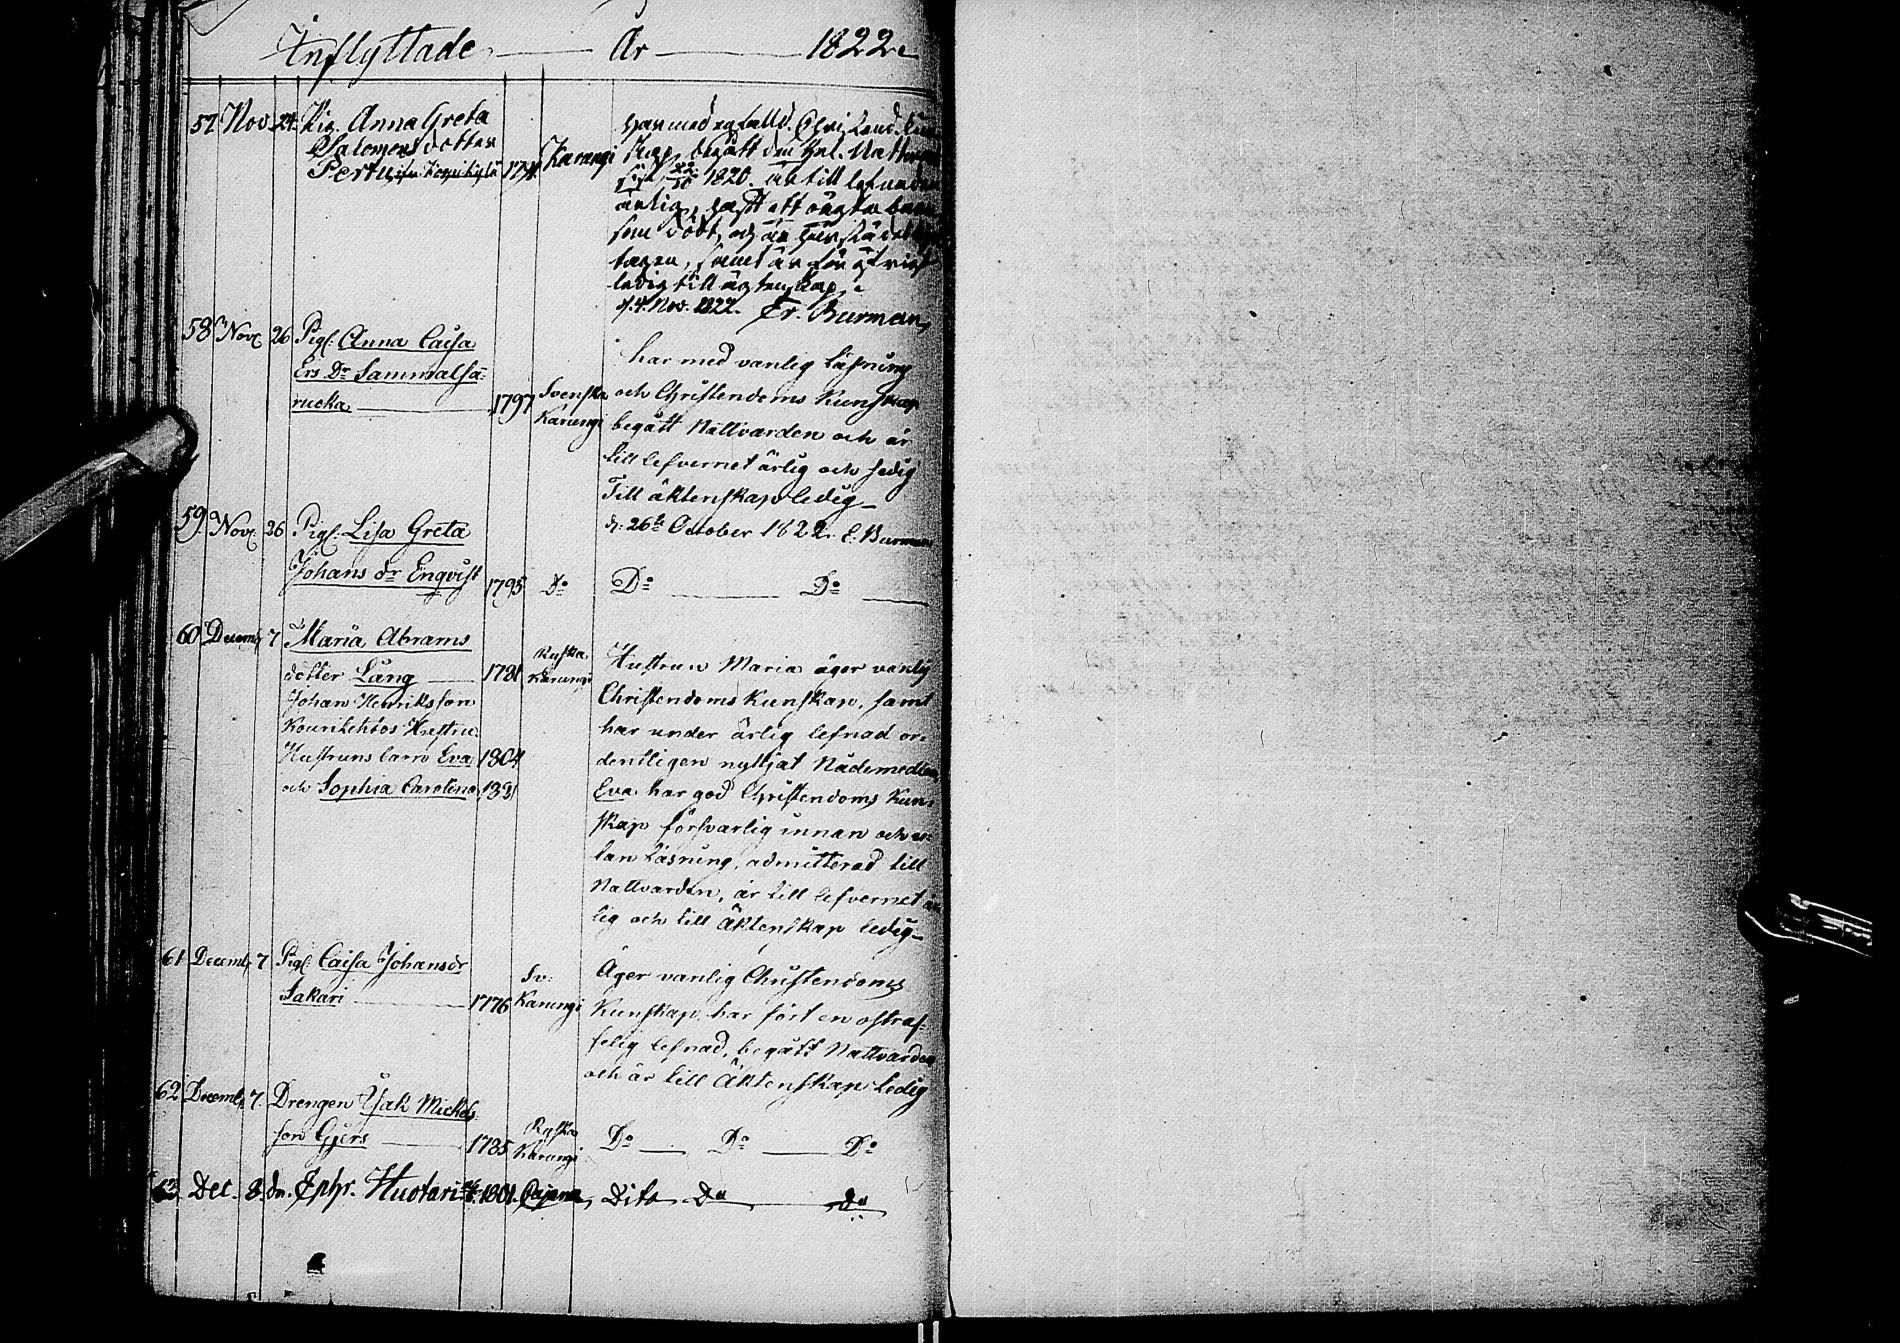 Inflyttade År 1822
57 Nov. 24. Pig. Anna Greta
Salomons dotter
Karungi
begått
1820. är till lefnaden
ärlig, haft ett oägta barn
som dödt, och är
tagen, samt är för öfrigt
ledig till ägtenskap.
d. 4. Nov. 1822. Er. Burman
58 Nov. 26 Pig. Anna Caisa
Ers Dr Sammalsa-
rucka 1797 Svenska Karungi
har med vanlig Läsning
och Christendoms Kunskap
begått Nattvarden och är
till lefvernet ärlig och sedig
Till äktenskap ledig
d: 26te October 1822. E. Burman
59 Nov. 26 Pig. Lisa Greta
Johans dr Enqvist 1795 Do Do Do
60 Decemb. 7 Maria Abrams
dotter Lång 1781 Ryska Karungi
Johan Henriksson
Kourilehtos Hustru
Hustruns barn Eva 1804
och Sophia Carolina
Hustrun Maria äger vanlig
Christendoms Kunskap, samt
har under ärlig lefnad or-
dentligen nyttjat Nådemedlen,
Eva har god Christendoms Kun-
skap försvarlig innan och u-
tan Läsning, admitterad till
Nattvarden, är till lefvernet är-
lig och till Äktenskap ledig
61 Decemb. 7 Pig. Caisa Johansdr
Sakari 1776 Sv: Karungi
Äger vanlig Christendoms
Kunskap, har fört en ostraf-
felig lefnad, begått Nattvarden
och är till Äktenskap Ledig
62 Decemb. 7. Drengen Isak Mickels
son Gjers 1785 Ryska Karungi Do Do Do
63 Dec. 8. dn. Ephr. Huotari 1801. Cajana Dito Do do